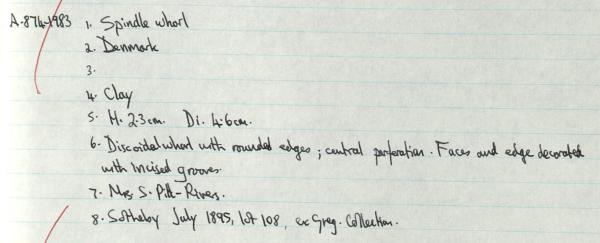 A.874-1983 1. Spindle whorl
2. Denmark
3.
4. Clay
5. H. 2.3cm. Di. 4.6cm.
6. Discoidal whorl with rounded edges; central perforation. Faces and edge decorated
with incised grooves.
7. Mrs S. Pitt-Rivers.
8. Sotheby July 1895, lot 108, ex Greg. Collection.